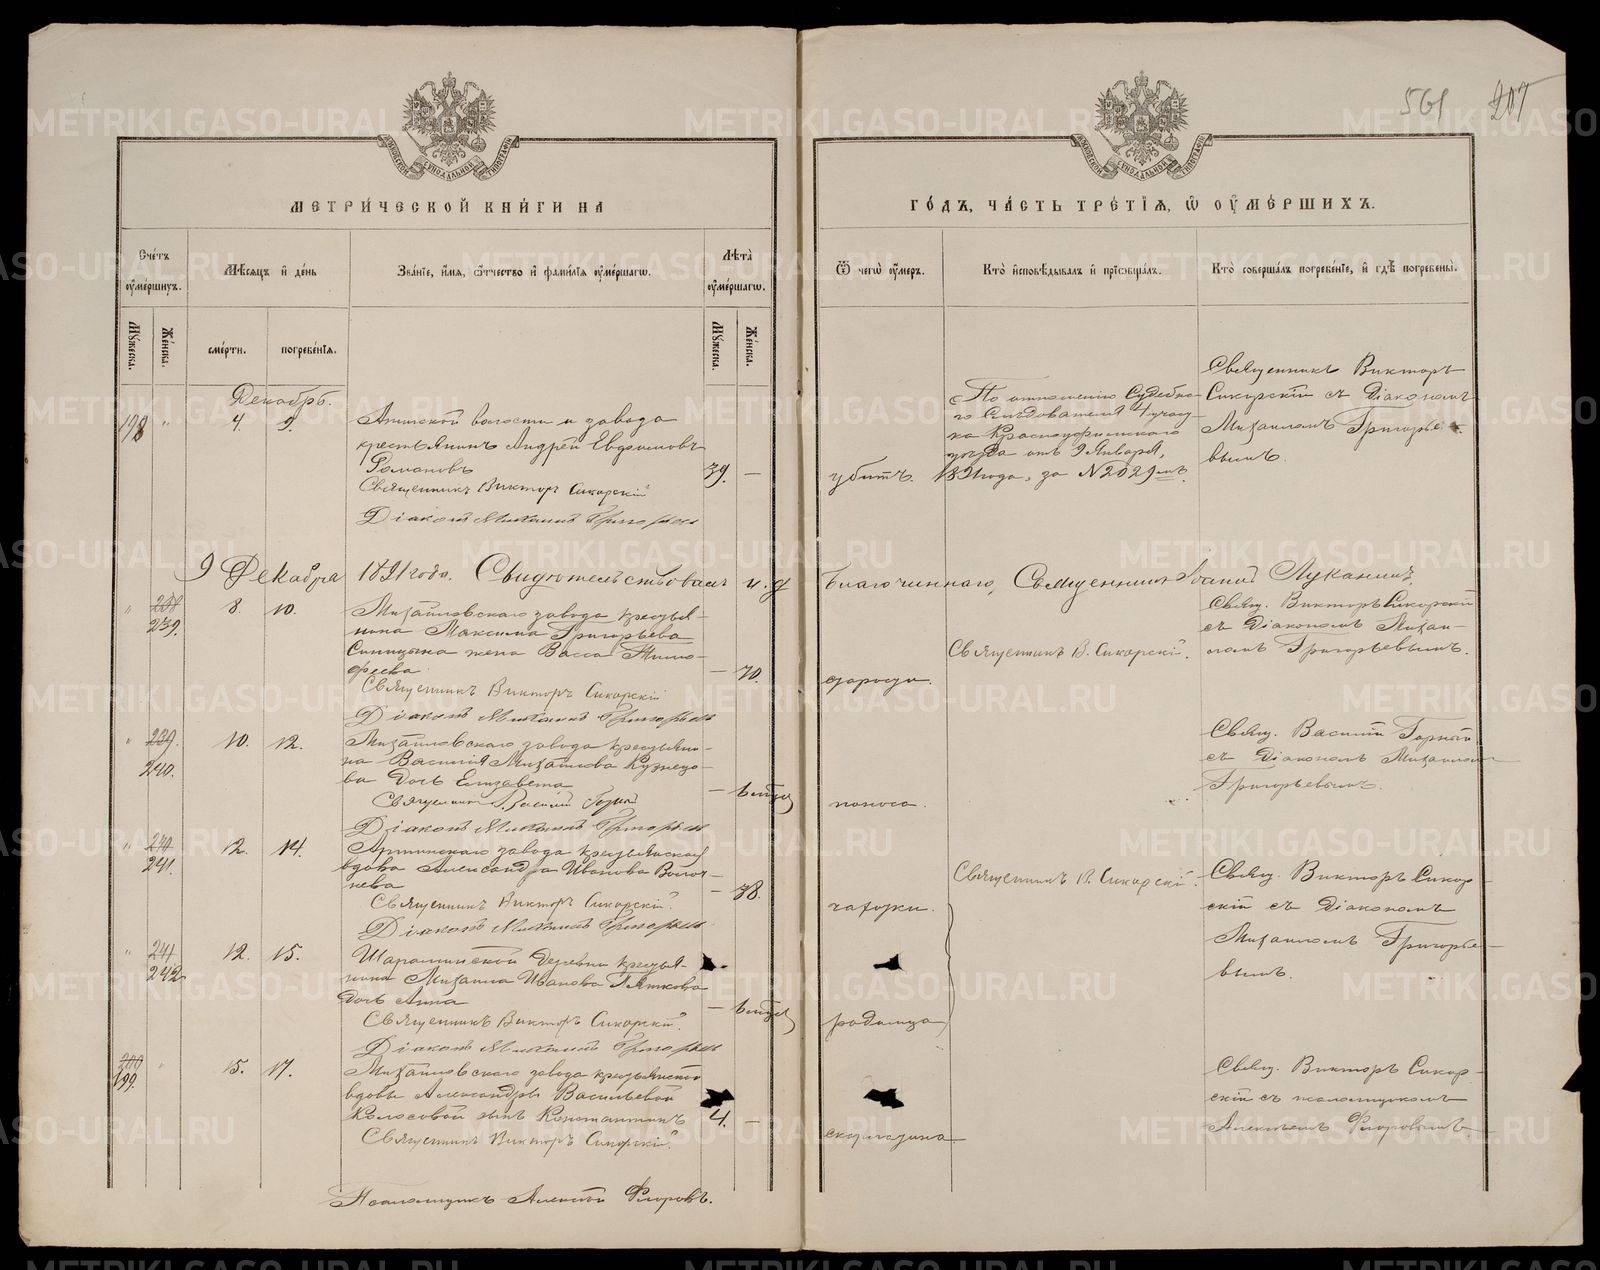 561 207
МЕТРИ́ЧЕСКОЙ КНИ́ГИ НА
ГО́ДЪ, ЧА́СТЬ ТРЕ́ТІѦ, Ѿ ОУ҆МЕ́РШИХЪ.
Сче́тъ оу҆ме́ршихъ.
Мѣ́сѧцъ и҆ де́нь
Зва́ніе, и҆́мѧ, ѻ҆́тчество и҆ фами́лїѧ оу҆ме́ршагѡ.
Лѣта̀ оу҆ме́ршагѡ.
Ѿ чегѡ̀ оу҆́меръ.
Кто̀ и҆сповѣ́дывалъ и҆ прїѡбща́лъ.
Кто̀ соверша́лъ погребе́нїе, и҆ гдѣ̀ погребены̀.
Мꙋ́жеска.
Же́нска.
сме́рти.
погребе́нїѧ.
Мꙋ́жеска.
Же́нска.
Декабрь.
198 " 4. 9.
Артинской волости и завода
крестьянинъ Андрей Евдокимовъ
Романовъ
79. —
Священникъ Викторъ Сикорскій
Діаконъ Михаилъ Григорьевъ
убитъ.
По отношенію Судебна-
го Слѣдователя 4 участ
ка Красноуфимскаго
уѣзда отъ 9 Января,
1891 года, за №2029мъ.
Священникъ Викторъ
Сикорскій съ Діакономъ
Михаиломъ Григорье-
вымъ.
9 Декабря 1891 года. Свидѣтельствовалъ и. д. Благочиннаго, Священникъ Іоаннъ Луканинъ.
" 238 239. 8. 10.
Михайловскаго завода крестья-
нина Максима Григорьева
Синицына жена Васса Тимо-
феева
— 70.
Священникъ Викторъ Сикорскій
Діаконъ Михаилъ Григорьевъ
старости.
Священникъ В. Сикорскій.
Свящ. Викторъ Сикорскій
съ Діакономъ Михаи-
ломъ Григорьевымъ.
" 239. 240. 10. 12.
Михайловскаго завода крестьяни-
на Василія Михайлова Кузнецо-
ва дочь Елизавета
Священникъ Василій Горный
Діаконъ Михаилъ Григорьевъ
поноса.
Свящ. Василій Горный
съ Діакономъ Михаиломъ
Григорьевымъ.
" 240 241. 12. 14.
Артинскаго завода крестьянская
вдова Александра Иванова
— 78.
Священникъ Викторъ Сикорскій
Діаконъ Михаилъ Григорьевъ
чахотки.
Священникъ В. Сикорскій.
Свящ. Викторъ Сикор-
скій съ Діакономъ
Михаиломъ Григорье-
вымъ.
" 241 242 12. 15.
деревни крестья-
нина Михаила Иванова
дочь Анна
Священникъ Викторъ Сикорскій
Діаконъ Михаилъ Григорьевъ
родимца
200 199. " 15. 17.
Михайловскаго завода крестьянской
вдовы Александры Васильевой
Колосовой сынъ Константинъ
4. —
Священникъ Викторъ Сикорскій
Псаломщикъ Алексѣй Флоровъ.
скарлатина
Свящ. Викторъ Сикор-
скій съ псаломщикомъ
Алексѣемъ Флоровымъ.
METRIKI.GASO-URAL.RU